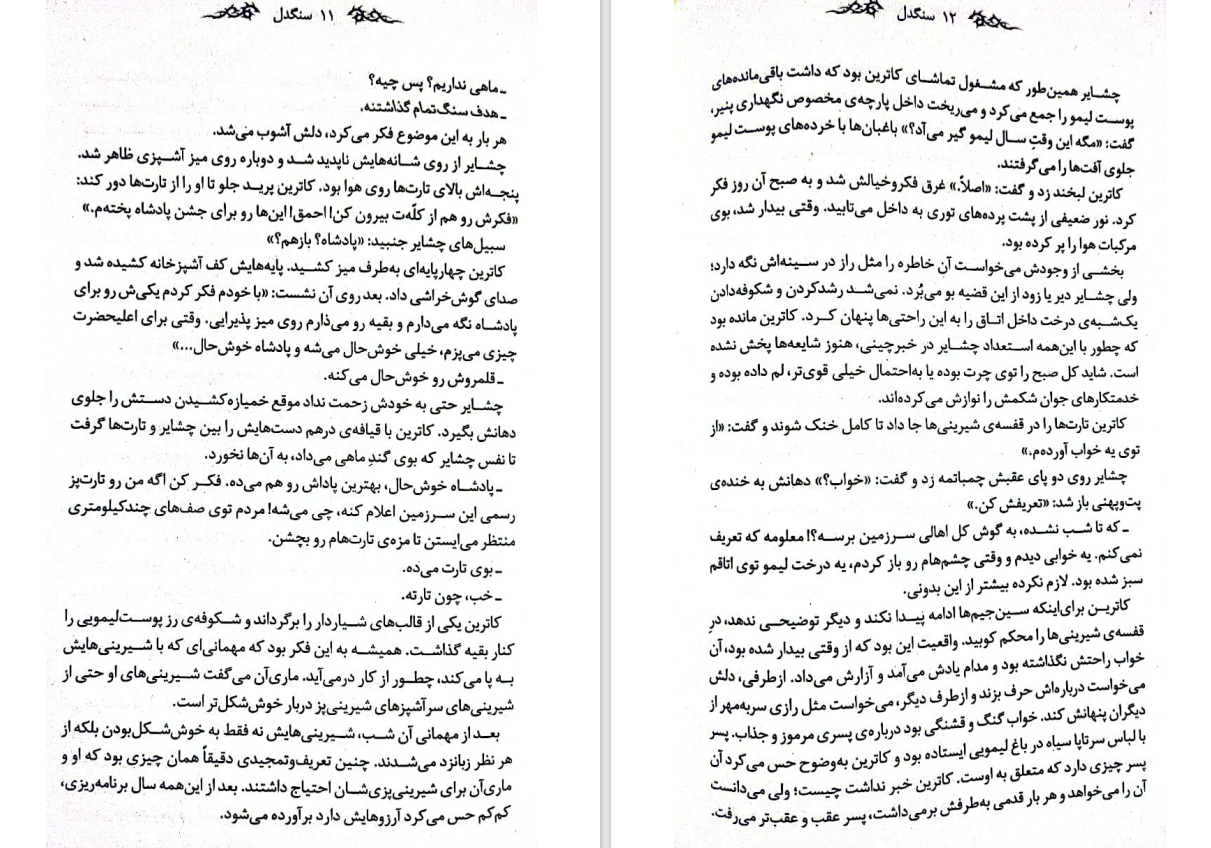 ۱۱ سنگدل
ـ ماهی نداریم؟ پس چیه؟
ـ هدف سنگ‌تمام گذاشتنه.
هر بار به این موضوع فکر می‌کرد، دلش آشوب می‌شد.
چشایر از روی شانه‌هایش ناپدید شد و دوباره روی میز آشپزی ظاهر شد.
پنجه‌اش بالای تارت‌ها روی هوا بود. کاترین پرید جلو تا او را از تارت‌ها دور کند:
«فکرش رو هم از کلّه‌ت بیرون کن! احمق! این‌ها رو برای جشن پادشاه پخته‌م.»
سبیل‌های چشایر جنبید: «پادشاه؟ بازهم؟»
کاترین چهارپایه‌ای به‌طرف میز کشید. پایه‌هایش کف آشپزخانه کشیده شد و
صدای گوش‌خراشی داد. بعد روی آن نشست: «با خودم فکر کردم یکی‌ش رو برای
پادشاه نگه می‌دارم و بقیه رو می‌ذارم روی میز پذیرایی. وقتی برای اعلیحضرت
چیزی می‌پزم، خیلی خوش‌حال می‌شه و پادشاه خوش‌حال...»
ـ قلمروش رو خوش‌حال می‌کنه.
چشایر حتی به خودش زحمت نداد موقع خمیازه‌کشیدن دستش را جلوی
دهانش بگیرد. کاترین با قیافه‌ی درهم دست‌هایش را بین چشایر و تارت‌ها گرفت
تا نفس چشایر که بوی گندِ ماهی می‌داد، به آن‌ها نخورد.
ـ پادشاه خوش‌حال، بهترین پاداش رو هم می‌ده. فکر کن اگه من رو تارت‌پز
رسمی این سرزمین اعلام کنه، چی می‌شه! مردم توی صف‌های چندکیلومتری
منتظر می‌ایستن تا مزه‌ی تارت‌هام رو بچشن.
ـ بوی تارت می‌ده.
ـ خب، چون تارته.
کاترین یکی از قالب‌های شیاردار را برگرداند و شکوفه‌ی رز پوست‌لیمویی را
کنار بقیه گذاشت. همیشه به این فکر بود که مهمانی‌ای که با شیرینی‌هایش
به پا می‌کند، چطور از کار درمی‌آید. ماری‌آن می‌گفت شیرینی‌های او حتی از
شیرینی‌های سرآشپزهای شیرینی‌پز دربار خوش‌شکل‌تر است.
بعد از مهمانی آن شب، شیرینی‌هایش نه فقط به خوش‌شکل‌بودن بلکه از
هر نظر زبانزد می‌شدند. چنین تعریف‌وتمجیدی دقیقاً همان چیزی بود که او و
ماری‌آن برای شیرینی‌پزی‌شان احتیاج داشتند. بعد از این‌همه سال برنامه‌ریزی،
کم‌کم حس می‌کرد آرزوهایش دارد برآورده می‌شود.
۱۲ سنگدل
چشایر همین‌طور که مشغول تماشای کاترین بود که داشت باقی‌مانده‌های
پوست لیمو را جمع می‌کرد و می‌ریخت داخل پارچه‌ی مخصوص نگهداری پنیر،
گفت: «مگه این وقتِ سال لیمو گیر می‌آد؟» باغبان‌ها با خرده‌های پوست لیمو
جلوی آفت‌ها را می‌گرفتند.
کاترین لبخند زد و گفت: «اصلاً.» غرق فکروخیالش شد و به صبح آن روز فکر
کرد. نور ضعیفی از پشت پرده‌های توری به داخل می‌تابید. وقتی بیدار شد، بوی
مرکبات هوا را پر کرده بود.
بخشی از وجودش می‌خواست آن خاطره را مثل راز در سینه‌اش نگه دارد؛
ولی چشایر دیر یا زود از این قضیه بو می‌بُرد. نمی‌شد رشدکردن و شکوفه‌دادن
یک‌شبه‌ی درخت داخل اتاق را به این راحتی‌ها پنهان کرد. کاترین مانده بود
که چطور با این‌همه استعداد چشایر در خبرچینی، هنوز شایعه‌ها پخش نشده
است. شاید کل صبح را توی چرت بوده یا به‌احتمال خیلی قوی‌تر، لم داده بوده و
خدمتکارهای جوان شکمش را نوازش می‌کرده‌اند.
کاترین تارت‌ها را در قفسه‌ی شیرینی‌ها جا داد تا کامل خنک شوند و گفت: «از
توی یه خواب آورده‌م.»
چشایر روی دو پای عقبش چمباتمه زد و گفت: «خواب؟» دهانش به خنده‌ی
پت‌وپهنی باز شد: «تعریفش کن.»
ـ که تا شب نشده، به گوش کل اهالی سرزمین برسه؟! معلومه که تعریف
نمی‌کنم. یه خوابی دیدم و وقتی چشم‌هام رو باز کردم، یه درخت لیمو توی اتاقم
سبز شده بود. لازم نکرده بیشتر از این بدونی.
کاترین برای‌اینکه سین‌جیم‌ها ادامه پیدا نکند و دیگر توضیحی ندهد، درِ
قفسه‌ی شیرینی‌ها را محکم کوبید. واقعیت این بود که از وقتی بیدار شده بود، آن
خواب راحتش نگذاشته بود و مدام یادش می‌آمد و آزارش می‌داد. ازطرفی، دلش
می‌خواست درباره‌اش حرف بزند و ازطرف دیگر، می‌خواست مثل رازی سربه‌مهر از
دیگران پنهانش کند. خواب گنگ و قشنگی بود درباره‌ی پسری مرموز و جذاب. پسر
با لباس سرتاپا سیاه در باغ لیمویی ایستاده بود و کاترین به‌وضوح حس می‌کرد آن
پسر چیزی دارد که متعلق به اوست. کاترین خبر نداشت چیست؛ ولی می‌دانست
آن را می‌خواهد و هر بار قدمی به‌طرفش برمی‌داشت، پسر عقب و عقب‌تر می‌رفت.